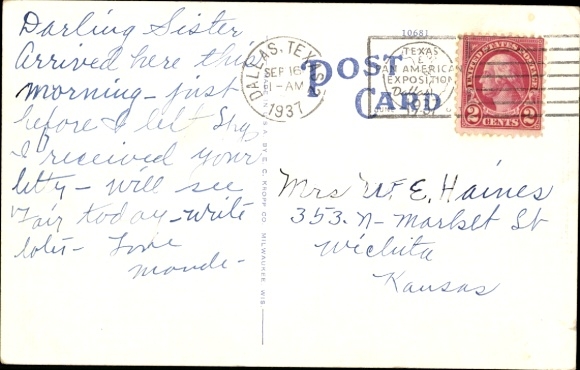 Darling Sister
Arrived here this
morning - just
before I left
I received your
- will see
Fair today - write
lots - Love
Maude -
10681
POST
CARD
DALLAS, TEXAS
SEP 16
1937
TEXAS
PAN AMERICAN
EXPOSITION
Dallas
1937
UNITED STATES POSTAGE
2 CENTS 2
Mrs W. E. Haines
353. N - Market St
Wichita
Kansas
E. C. KROPP CO. MILWAUKEE, WIS.